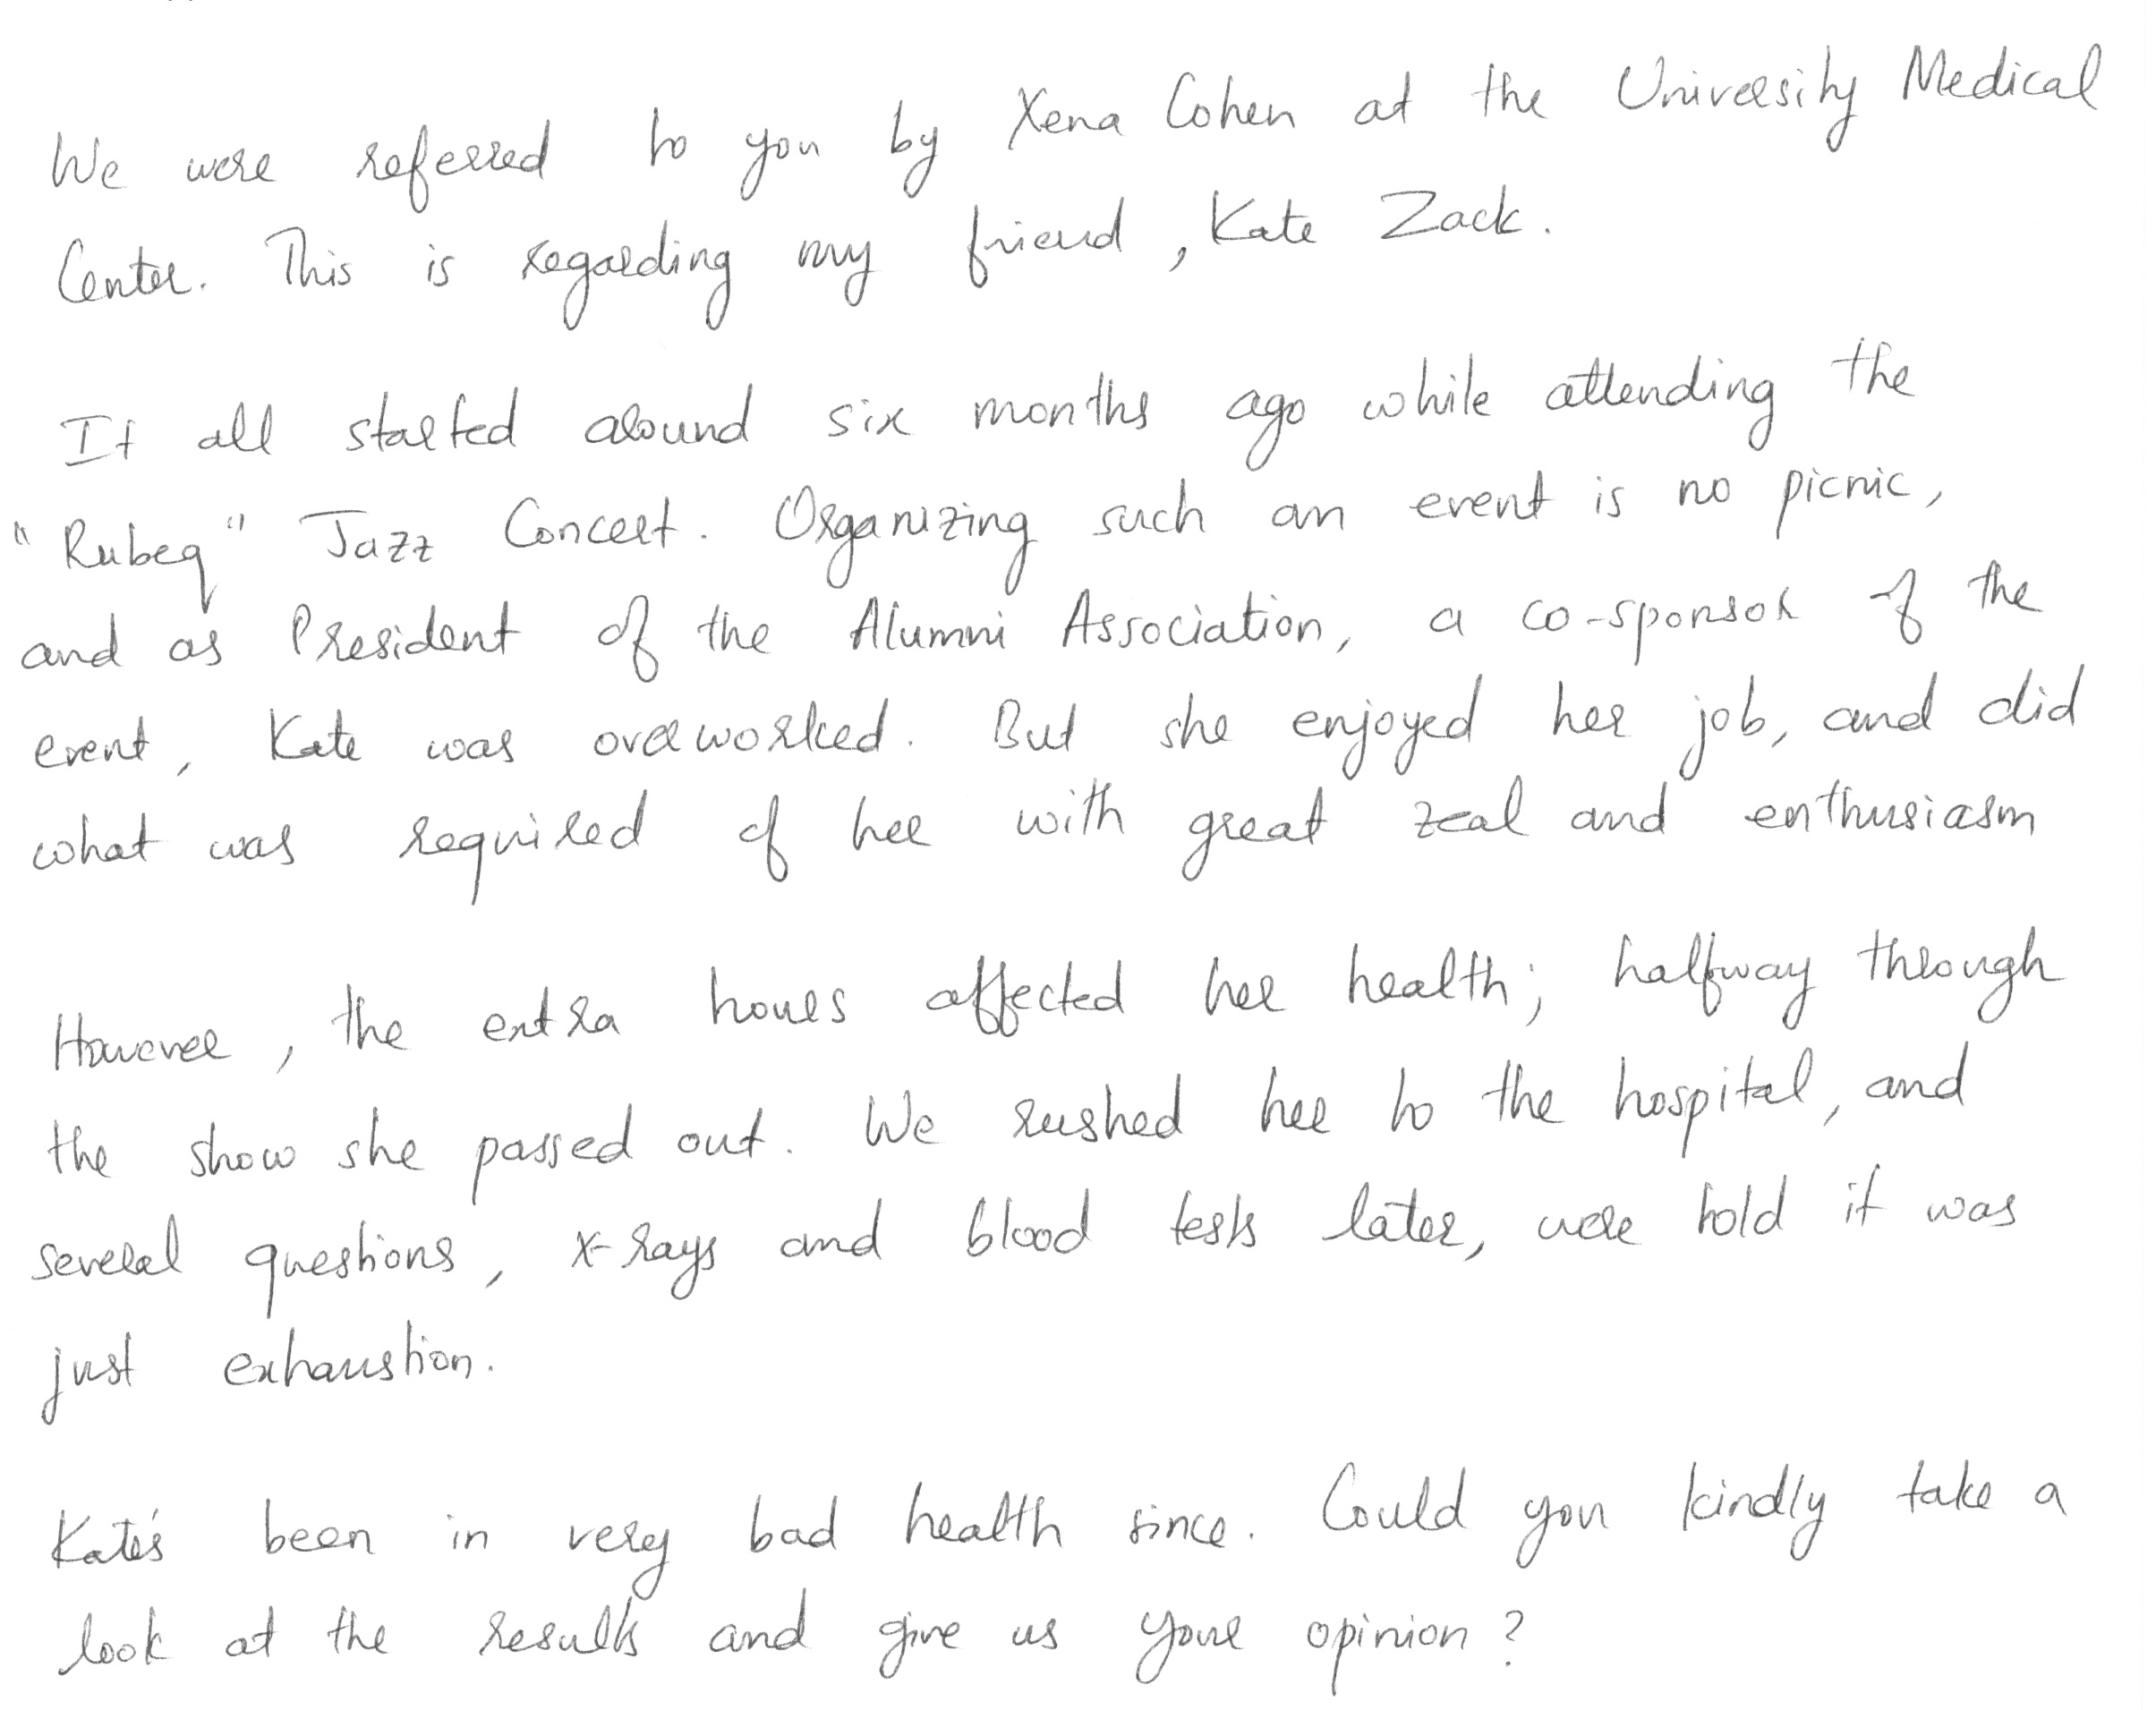 We were referred to you by Xena Cohen at the University Medical
Center. This is regarding my friend, Kate Zack.
It all started around six months ago while attending the
"Rubeq" Jazz Concert. Organizing such an event is no picnic,
and as President of the Alumni Association, a co-sponsor of the
event, Kate was overworked. But she enjoyed her job, and did
what was required of her with great zeal and enthusiasm
However, the extra hours affected her health; halfway through
the show she passed out. We rushed her to the hospital, and
several questions, x-rays and blood tests later, were told it was
just exhaustion.
Kate's been in very bad health since. Could you kindly take a
look at the results and give us your opinion?